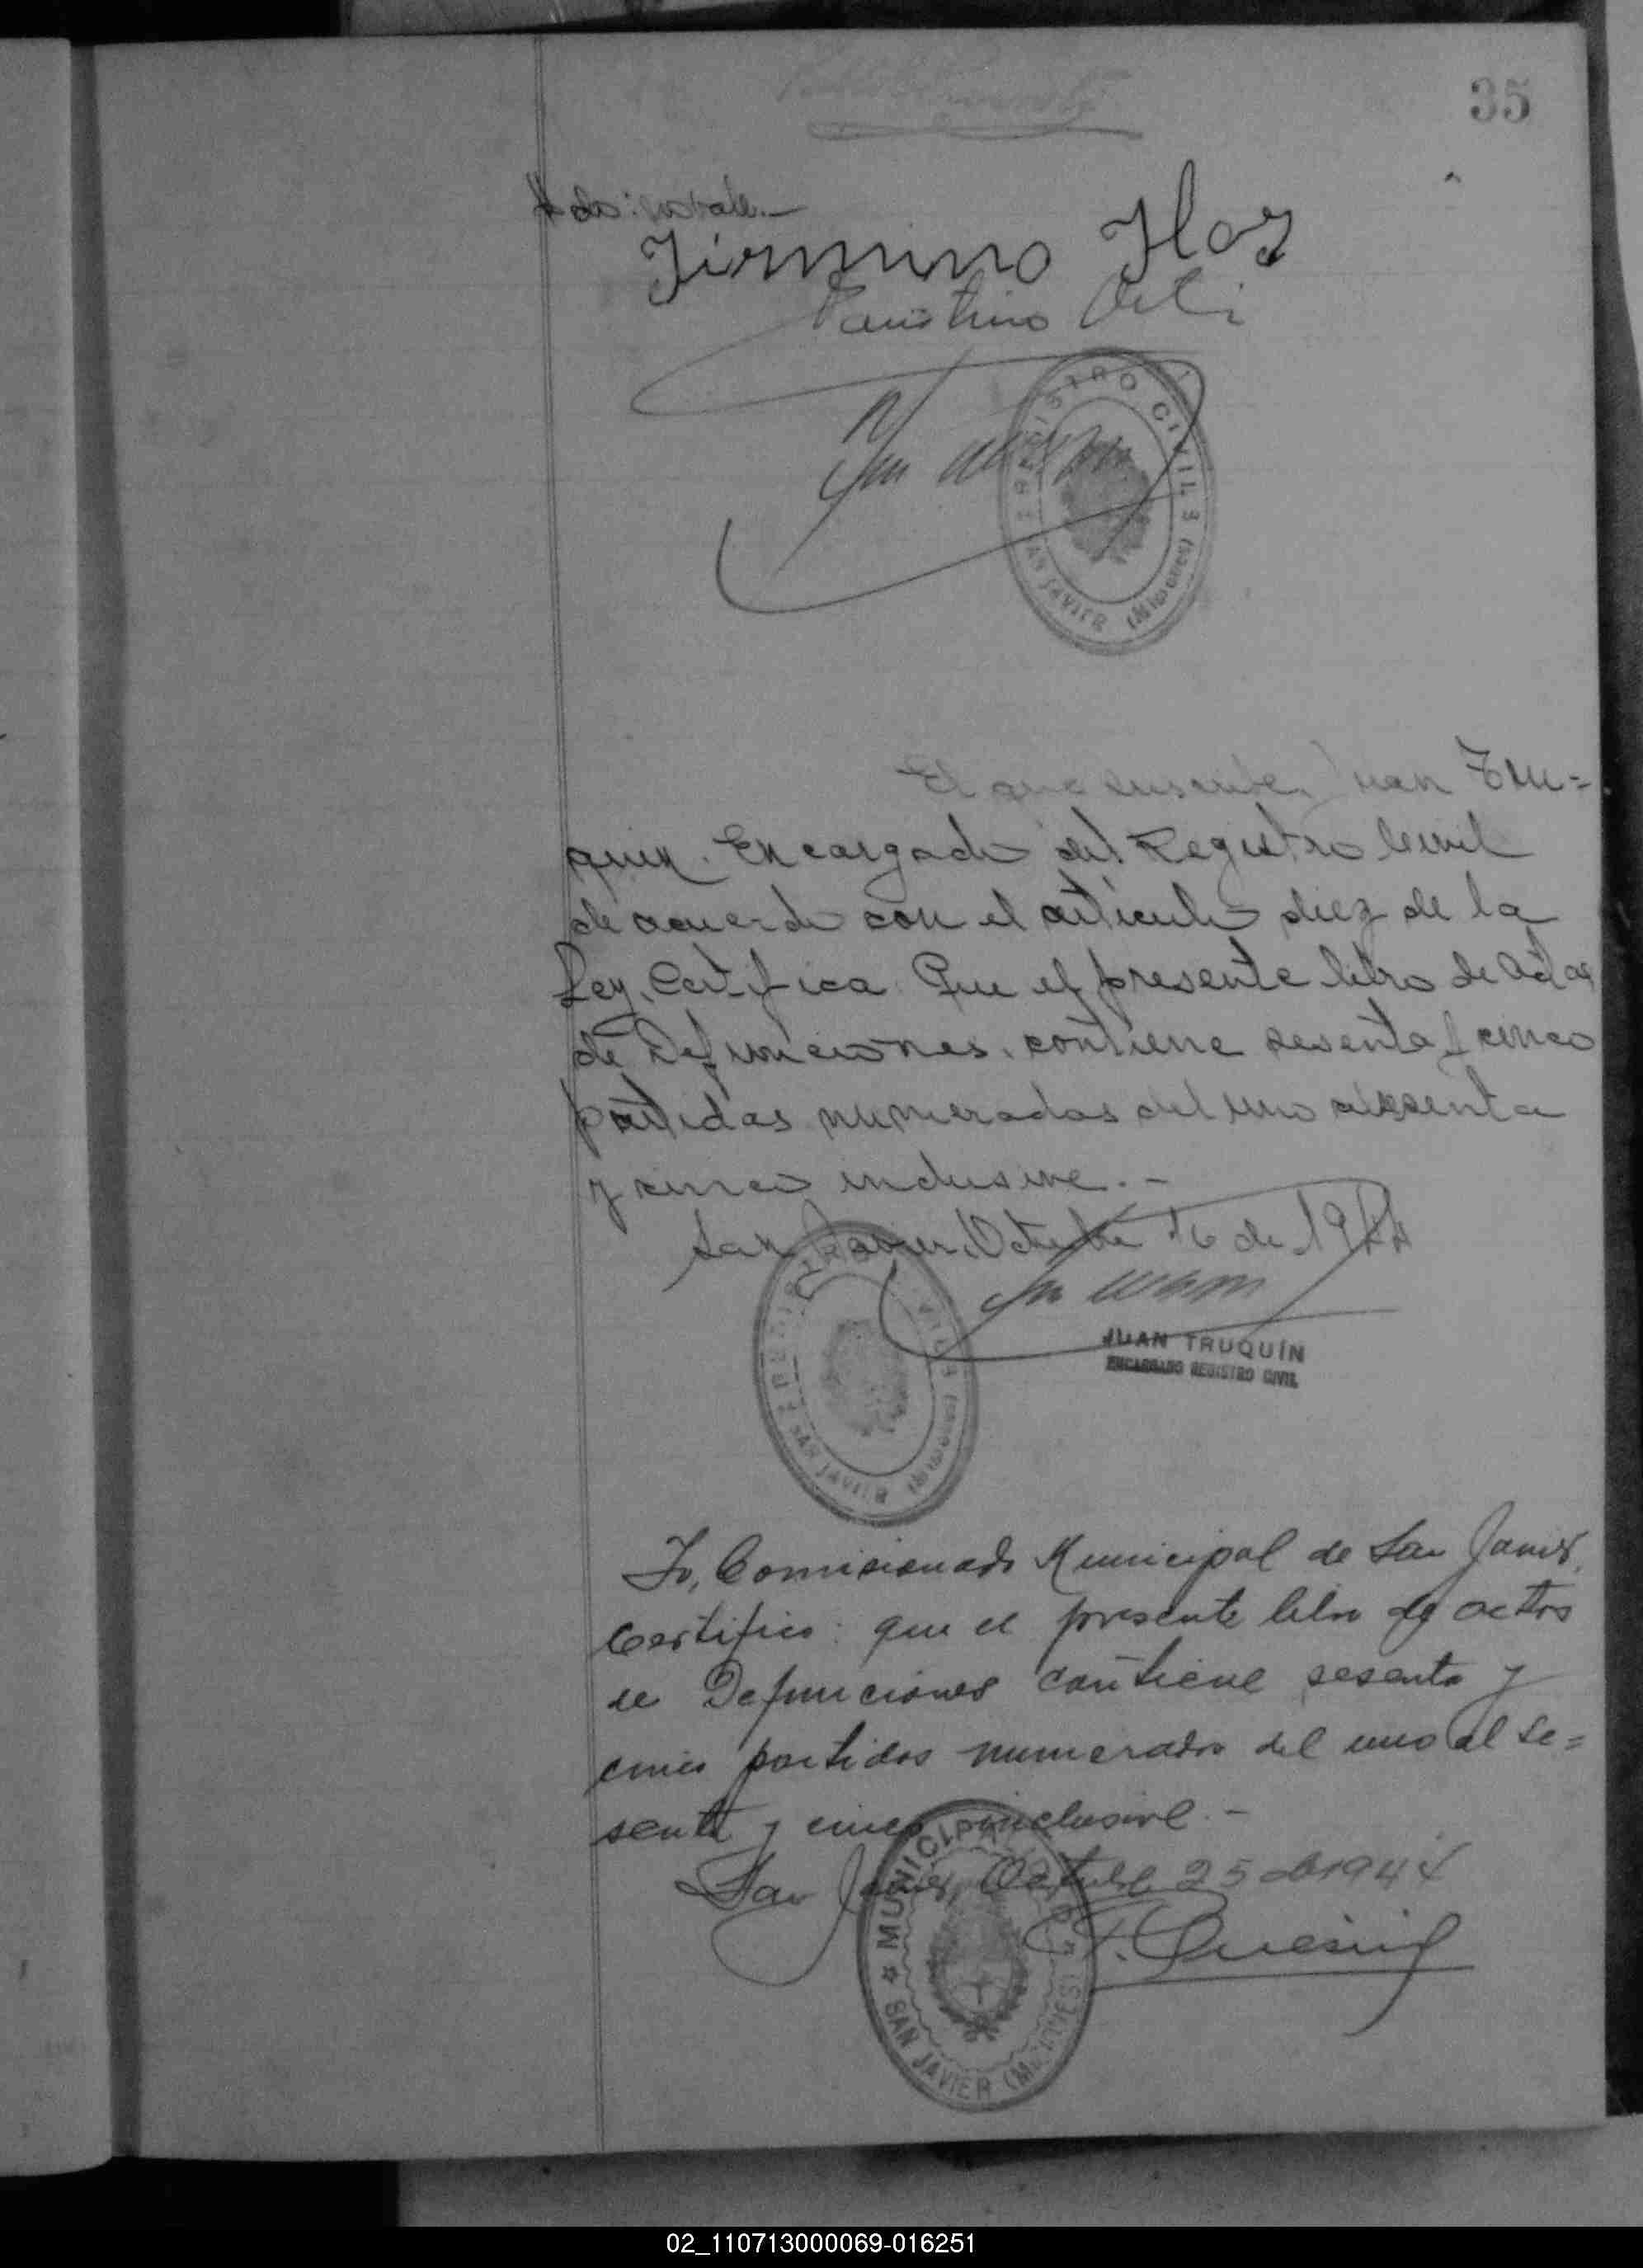 35
Firmino Floz
Faustino
REGISTRO CIVIL
SAN JAVIER (Misiones)
El que suscribe, Juan Tru=
quin. Encargado del Registro Civil
de acuerdo con el articulo diez de la
Ley, Certifica: Que el presente libro de Actas
de Defunciones, contiene sesenta y cinco
partidas numeradas del uno al sesenta
y cinco inclusive.-
San Javier, Octubre 16 de 1944
JUAN TRUQUÍN
ENCARGADO REGISTRO CIVIL
SAN JAVIER (Misiones)
Yo, Comisionado Municipal de San Javier,
Certifico: que el presente libro de actas
de Defunciones contiene sesenta y
cinco partidas numeradas del uno al se=
senta y cinco inclusive.-
San Javier, Octubre 25 de 1944
MUNICIPALIDAD
SAN JAVIER (MISIONES)
02_110713000069-016251